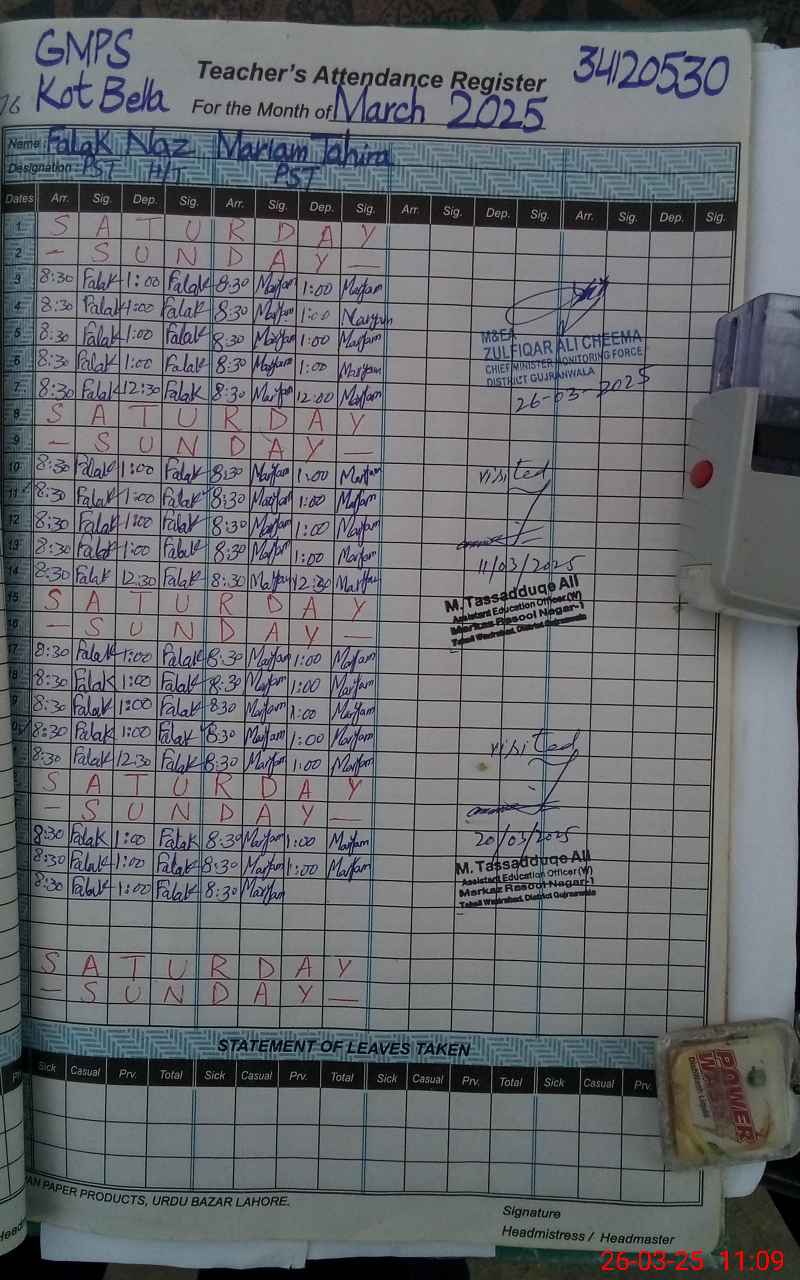 GMPS
Kot Bella
Teacher's Attendance Register
34120530
For the Month of March 2025
Name Falak Naz Mariam Tahira
Designation PST H/T PST
Dates Arr. Sig. Dep. Sig. Arr. Sig. Dep. Sig. Arr. Sig. Dep. Sig. Arr. Sig. Dep. Sig.
1 S A T U R D A Y
2 — S U N D A Y —
3 8:30 Falak 1:00 Falak 8:30 Maryam 1:00 Maryam
4 8:30 Falak 1:00 Falak 8:30 Maryam 1:00 Maryam
5 8:30 Falak 1:00 Falak 8:30 Maryam 1:00 Maryam
6 8:30 Falak 1:00 Falak 8:30 Maryam 1:00 Maryam
7 8:30 Falak 12:30 Falak 8:30 Maryam 12:00 Maryam
8 S A T U R D A Y
9 — S U N D A Y —
10 8:30 Falak 1:00 Falak 8:30 Maryam 1:00 Maryam
11 8:30 Falak 1:00 Falak 8:30 Maryam 1:00 Maryam
12 8:30 Falak 1:00 Falak 8:30 Maryam 1:00 Maryam
13 8:30 Falak 1:00 Falak 8:30 Maryam 1:00 Maryam
14 8:30 Falak 12:30 Falak 8:30 Maryam 12:30 Maryam
15 S A T U R D A Y
16 — S U N D A Y —
17 8:30 Falak 1:00 Falak 8:30 Maryam 1:00 Maryam
18 8:30 Falak 1:00 Falak 8:30 Maryam 1:00 Maryam
9 8:30 Falak 1:00 Falak 830 Maryam 1:00 Maryam
8:30 Falak 1:00 Falak 8:30 Maryam 1:00 Maryam
8:30 Falak 12:30 Falak 8:30 Maryam 1:00 Maryam
S A T U R D A Y
— S U N D A Y —
8:30 Falak 1:00 Falak 8:30 Maryam 1:00 Maryam
8:30 Falak 1:00 Falak 8:30 Maryam 1:00 Maryam
8:30 Falak 1:00 Falak 8:30 Maryam
S A T U R D A Y
— S U N D A Y —
M&EA
ZULFIQAR ALI CHEEMA
CHIEF MINISTER MONITORING FORCE
DISTRICT GUJRANWALA
26-03-2025
visited
11/03/2025
M. Tassadduqe Ali
Assistant Education Officer (W)
Markaz Rasool Nagar-1
Tehsil Wazirabad, District Gujranwala
visited
20/03/2025
M. Tassadduqe Ali
Assistant Education Officer (W)
Markaz Rasool Nagar-1
Tehsil Wazirabad, District Gujranwala
STATEMENT OF LEAVES TAKEN
Sick Casual Prv. Total Sick Casual Prv. Total Sick Casual Prv. Total Sick Casual Prv.
PAPER PRODUCTS, URDU BAZAR LAHORE.
Signature
Headmistress / Headmaster
POWER
26-03-25 11:09